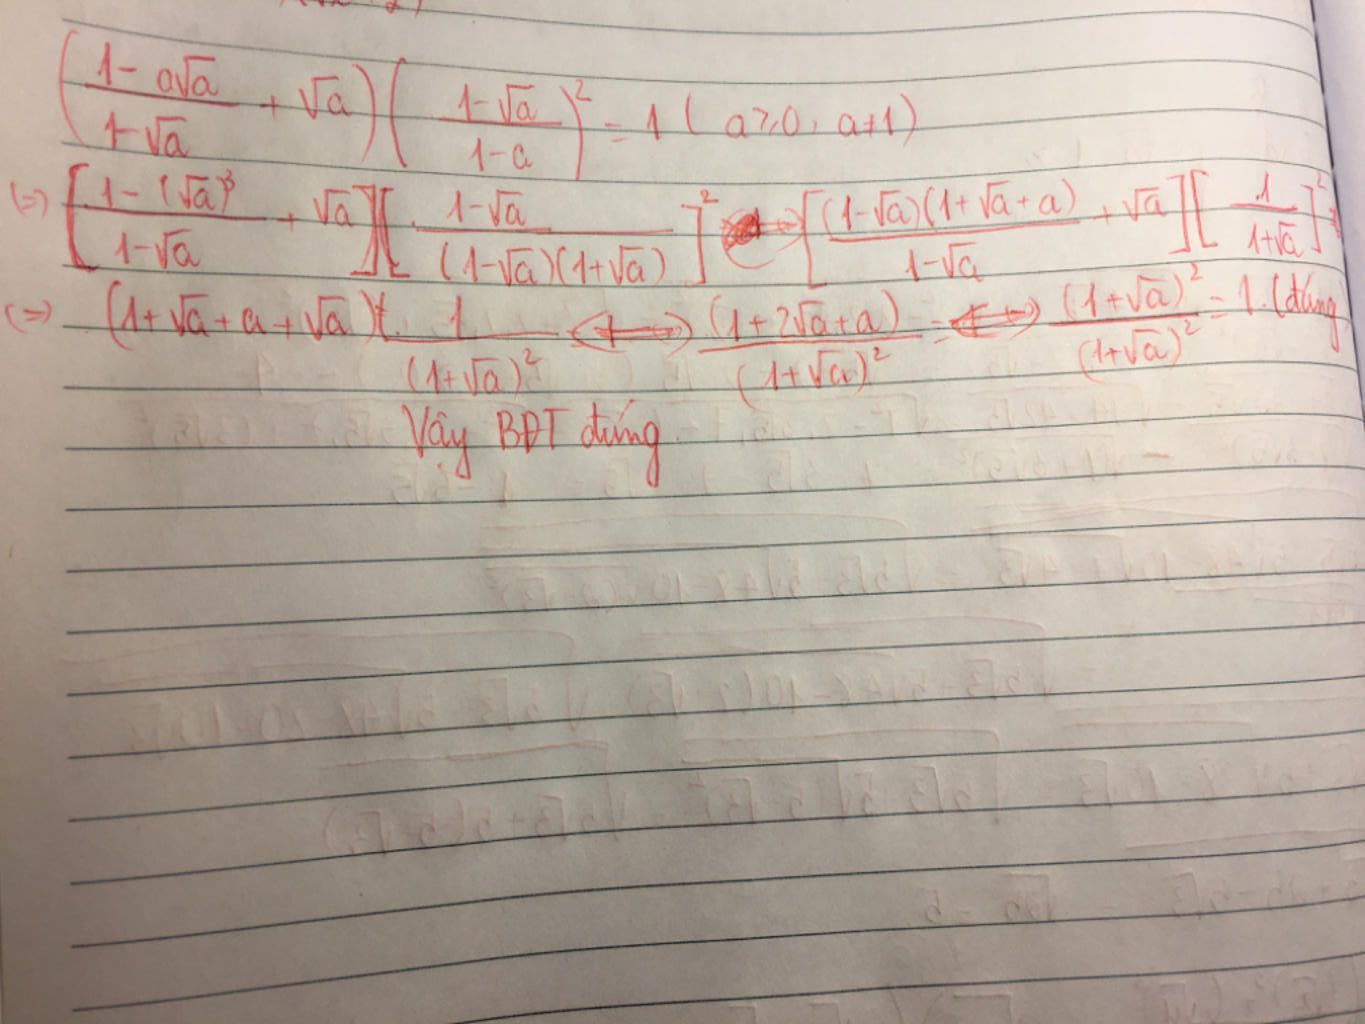 (1-a√a / 1-√a + √a)(1-√a / 1-a)² = 1 ( a ≥ 0, a ≠ 1)
(=) [1-(√a)³ / 1-√a + √a][1-√a / (1-√a)(1+√a)]² [(1-√a)(1+√a+a) / 1-√a + √a][1 / 1+√a]²
(=) (1+√a+a+√a). 1 / (1+√a)² (1+2√a+a) / (1+√a)² = (1+√a)² / (1+√a)² = 1. (đúng
Vậy BĐT đúng